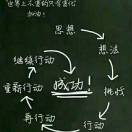 世界上不变的只有变化
加油!
思想
想法
挑战
行动
再行动
重新行动
继续行动
成功!